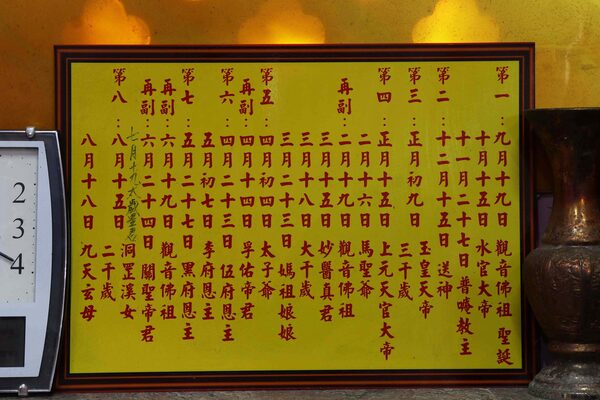 第一：九月十九日 觀音佛祖 聖誕
十月十五日 水官大帝
十一月二十七日 普唵教主
第二：十二月十五日 送神
玉皇天帝
第三：正月初九日
三千歲
第四：正月十五日 上元天官大帝
二月十六日 馬聖爺
再副：二月十九日 觀音佛祖
三月十五日 妙醫真君
三月十八日 大千歲
三月二十三日 媽祖娘娘
第五：四月初四日 太子爺
再副：四月初四日 孚佑帝君
第六：四月二十三日 伍府恩主
五月初七日 李府恩主
第七：五月二十七日 黑府恩主
再副：六月十九日 觀音佛祖
再副：六月二十四日 關聖帝君
七月十九 太歲星君
洞罡溪女
第八：八月十五日 二千歲
八月十八日 九天玄母
2
3
4